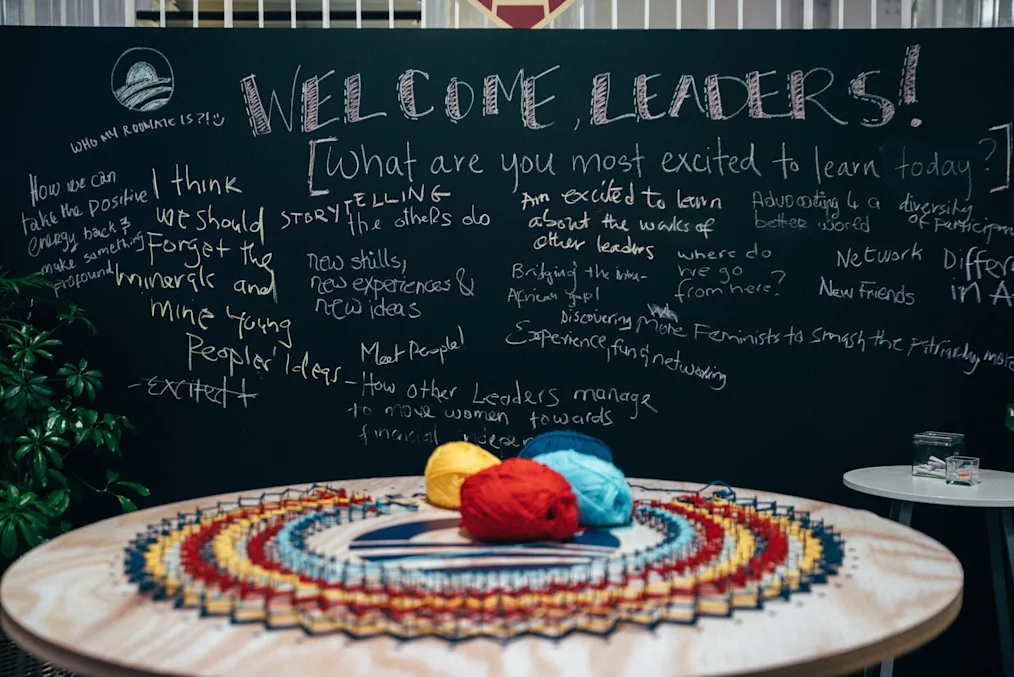 WELCOME, LEADERS!
[What are you most excited to learn today?]
WHO MY ROOMATE IS?!
How we can
take the positive
energy back &
make something
profound
I think
we should
Forget the
minerals and
mine young
Peoples' Ideas
-excited+
STORYTELLING
the others do
new skills,
new experiences &
new ideas
Meet People!
- How other Leaders manage
to move women towards
financial
Am excited to learn
about the works of
other leaders
Bridging the
African gap!
Discovering
Experience, fun & networking
More Feminists to Smash the more
where do
we go
from here?
Advocating 4 a
better world
Network
New Friends
diversity
of
in